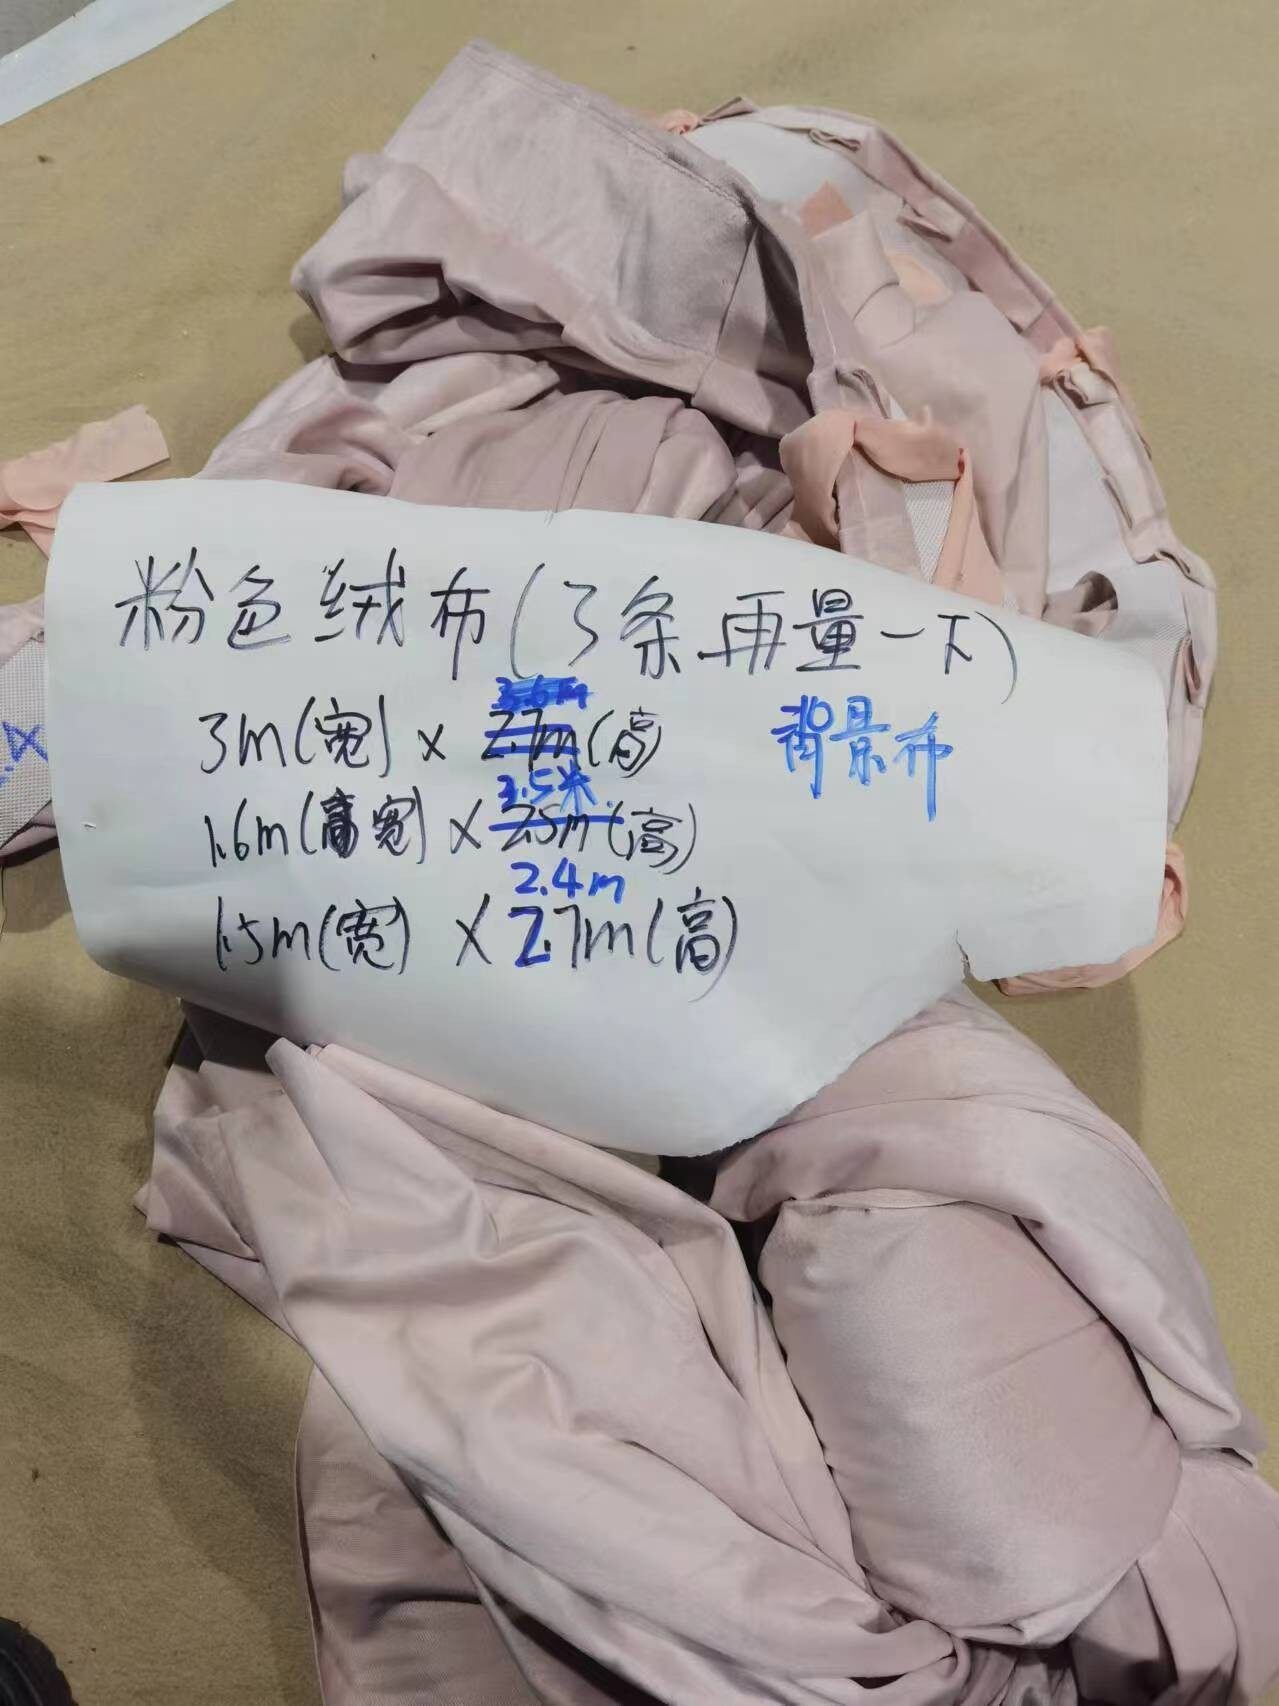 粉色绒布(3条.再量一下)
3.6m
3m(宽) × 2.7m(高) 背景布
3.5米
1.6m(高宽) × 2.5m(高)
2.4m
1.5m(宽) × 2.7m(高)